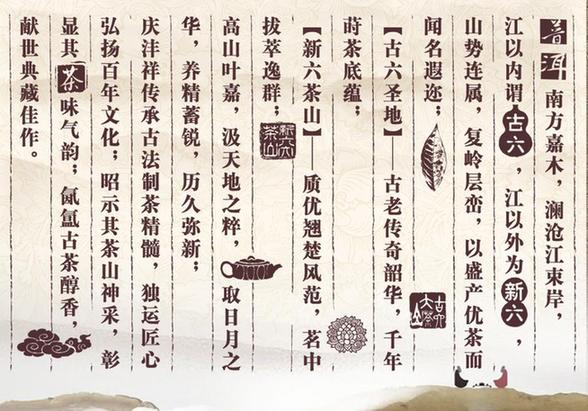 普洱 南方嘉木，澜沧江東岸，
江以内谓古六，江以外为新六，
山势连属，复岭层峦，以盛产优茶而
闻名遐迩；
【古六圣地】——古老传奇韶华，千年
莳茶底蕴；
【新六茶山】——质优翘楚风范，茗中
拔萃逸群；
高山叶嘉，汲天地之粹，取日月之
华，养精蓄锐，历久弥新；
庆沣祥传承古法制茶精髓，独运匠心
弘扬百年文化；昭示其茶山神采，彰
显其茶味气韵；氤氲古茶醇香，
献世典藏佳作。